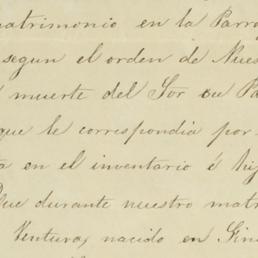 matrimonio en la Parro
segun el orden de Nues
muerte del Sor su Pa
que le correspondia por
en el inventario é hij
Que durante nuestro matr
Ventura, nacido en Gin